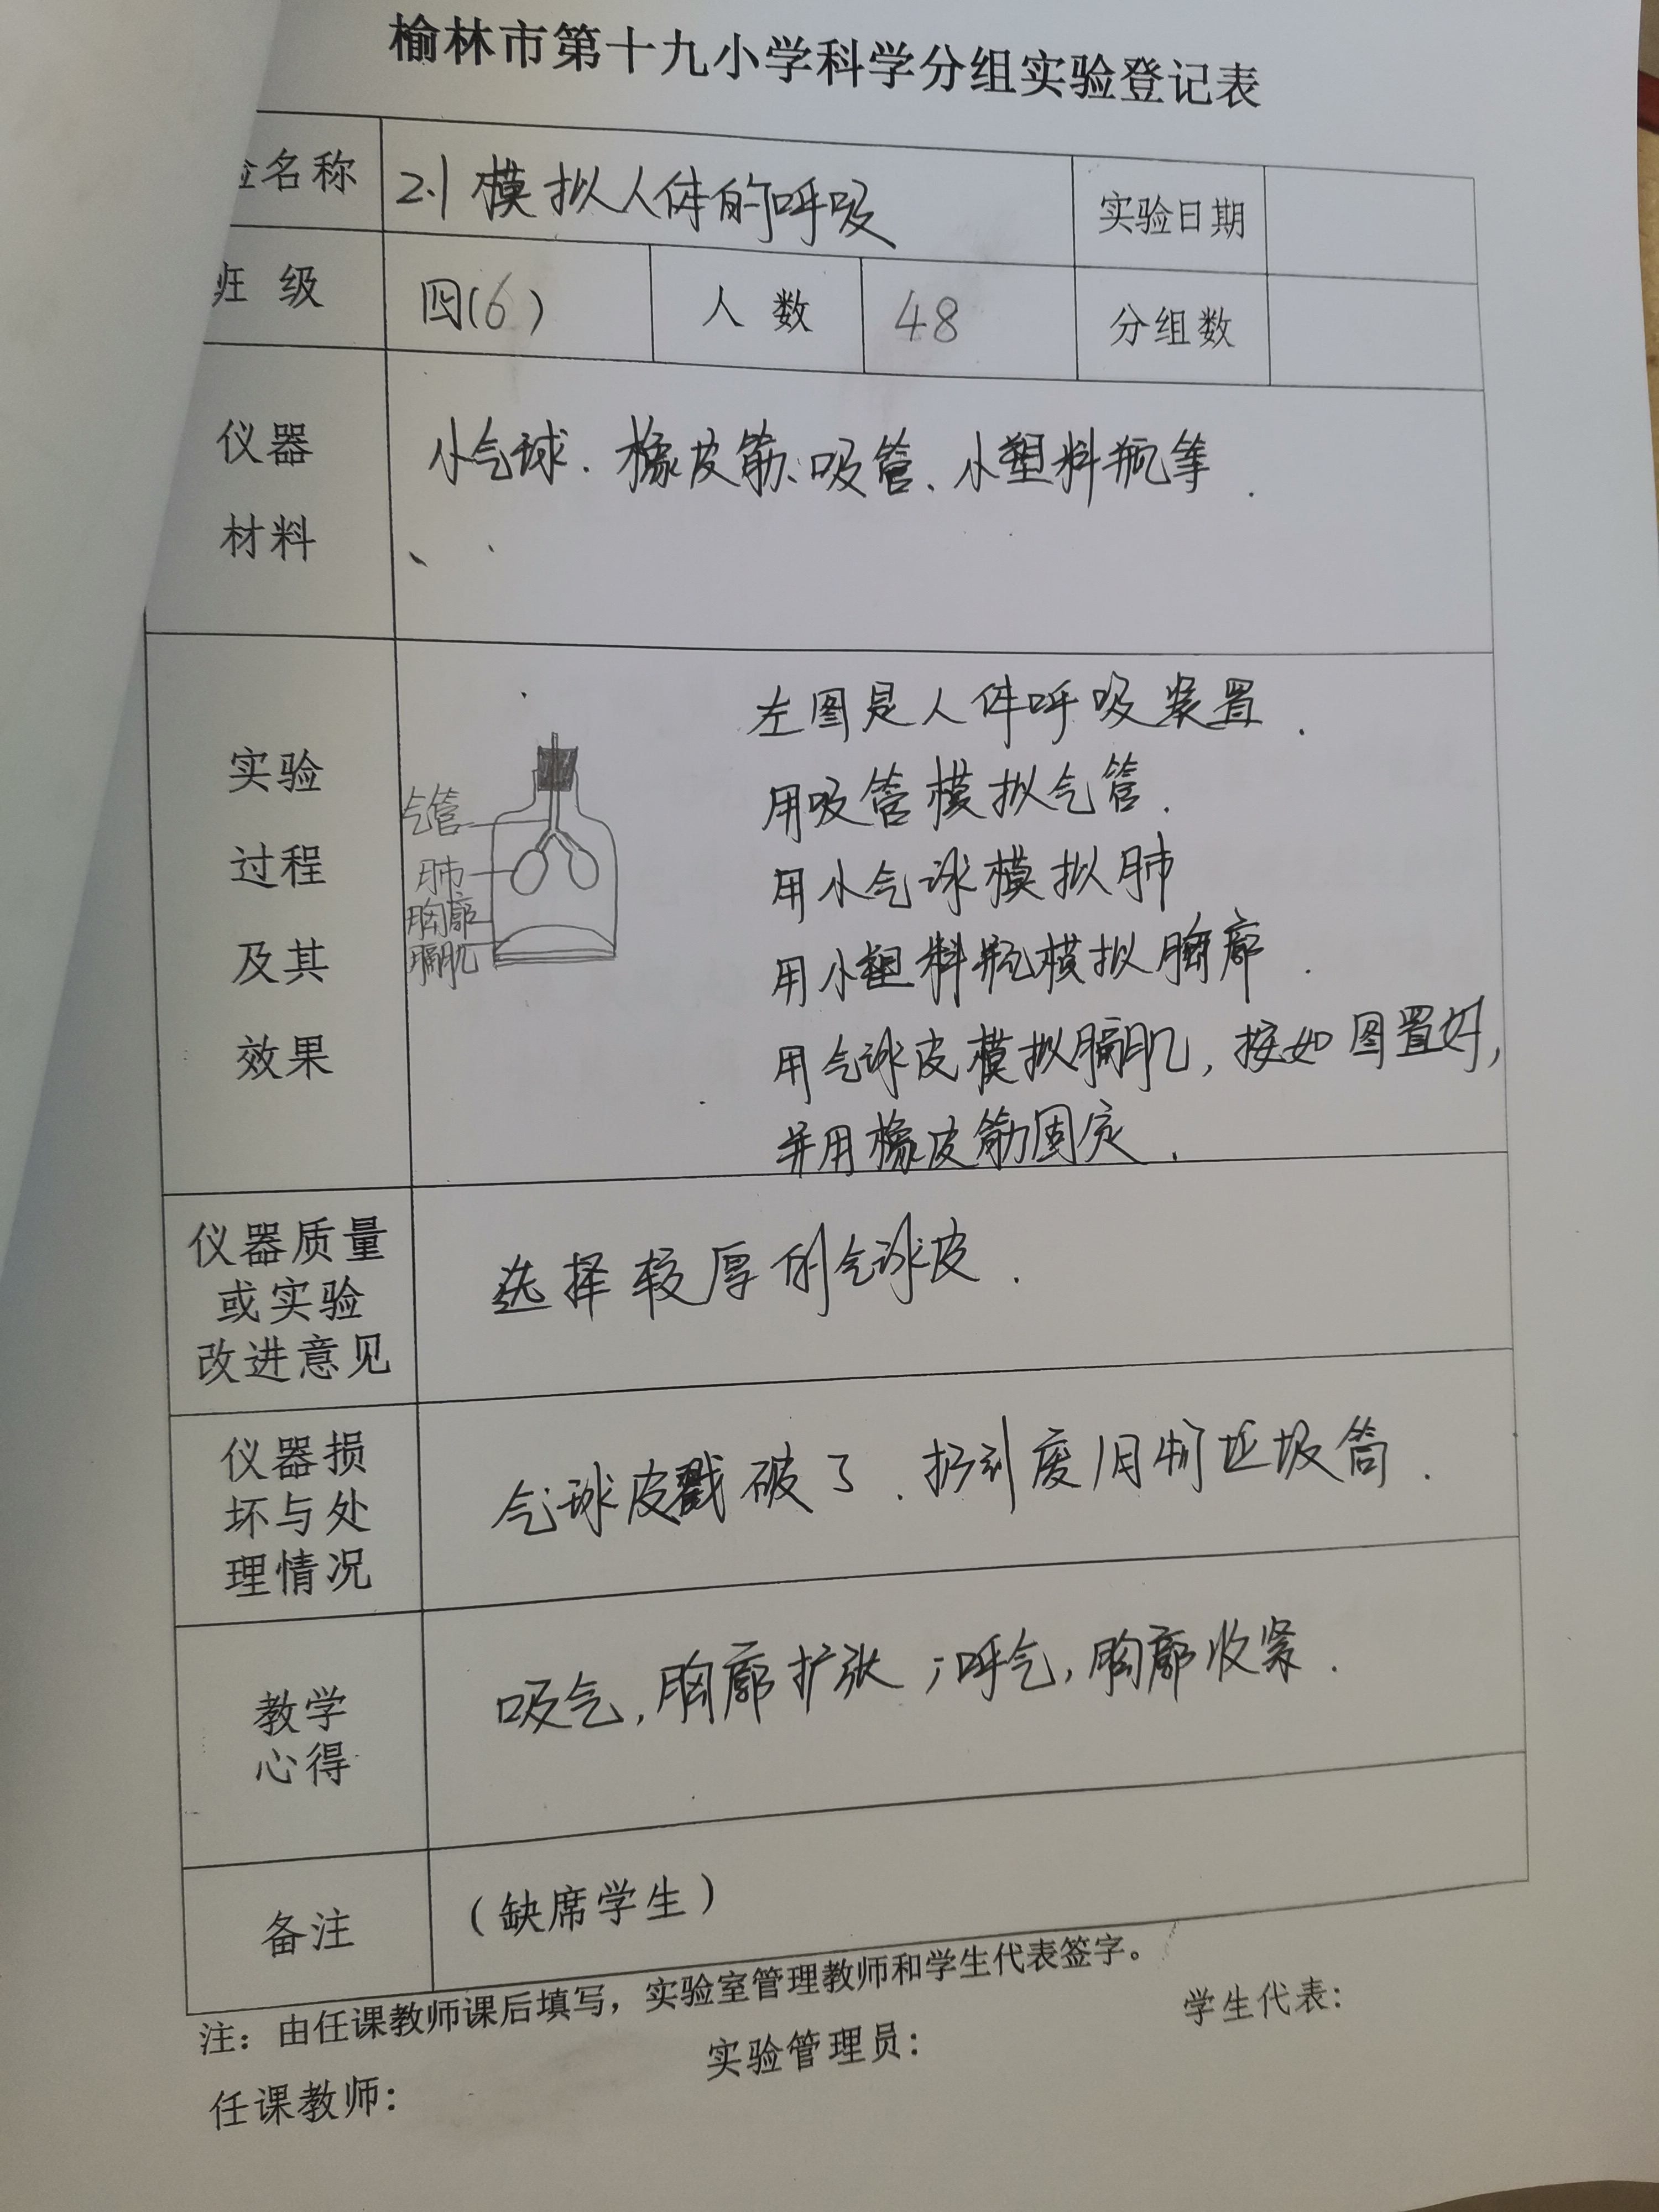 榆林市第十九小学科学分组实验登记表
名称 2.1 模拟人体的呼吸 实验日期
班 级 四(6) 人 数 48 分组数
仪器
材料
小气球、橡皮筋、吸管、小塑料瓶等.
实验
过程
及其
效果
气管
肺
胸廓
膈肌
左图是人体呼吸装置.
用吸管模拟气管.
用小气球模拟肺
用小塑料瓶模拟胸廓.
用气球皮模拟膈肌, 按如图置好,
并用橡皮筋固定.
仪器质量
或实验
改进意见
选择较厚的气球皮.
仪器损
坏与处
理情况
气球皮戳破了.扔到废旧物垃圾筒.
教学
心得
吸气,胸廓扩张;呼气,胸廓收紧.
备注 (缺席学生)
注：由任课教师课后填写，实验室管理教师和学生代表签字。
任课教师： 实验管理员： 学生代表：